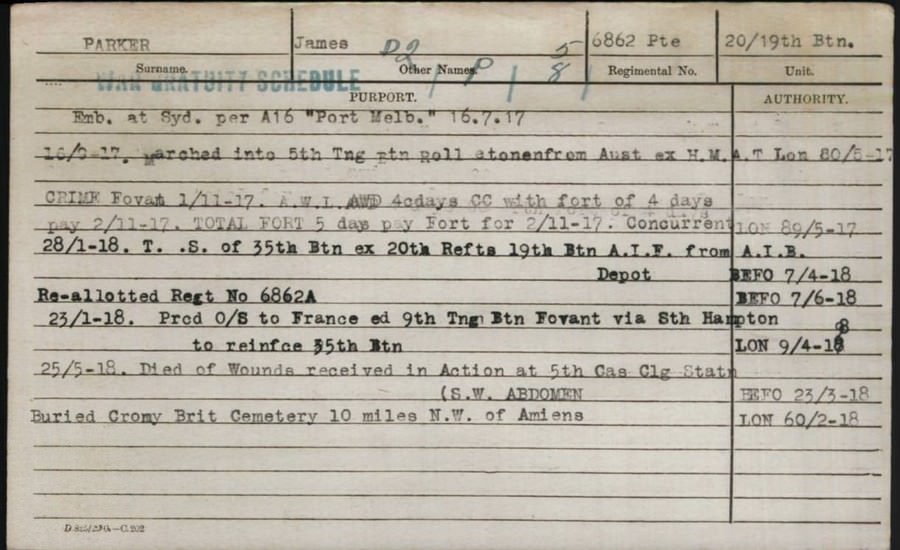 PARKER James D2 6862 Pte 20/19th Btn.
Surname. Other Names. Regimental No. Unit.
WAR GRATUITY SCHEDULE
PURPORT. AUTHORITY.
Emb. at Syd. per A16 "Port Melb." 16.7.17
16/9-17. Marched into 5th Tng Btn from Aust ex H.M.A.T Lon 80/5-17
CRIME Fovant 1/11-17. A.W.L. 4cdays CC with fort of 4 days
pay 2/11-17. TOTAL FORT 5 days pay Fort for 2/11-17. Concurrent LON 89/5-17
28/1-18. T. .S. of 35th Btn ex 20th Refts 19th Btn A.I.F. from A.I.B.
Depot BEFO 7/4-18
Re-allotted Regt No 6862A BEFO 7/6-18
23/1-18. Prcd O/S to France ed 9th Tng Btn Fovant via Sth Hampton
to reinfce 35th Btn LON 9/4-18
25/5-18. Died of Wounds received in Action at 5th Cas Clg Statn
(S.W. ABDOMEN BEFO 23/3-18
Buried Cromy Brit Cemetery 10 miles N.W. of Amiens LON 60/2-18